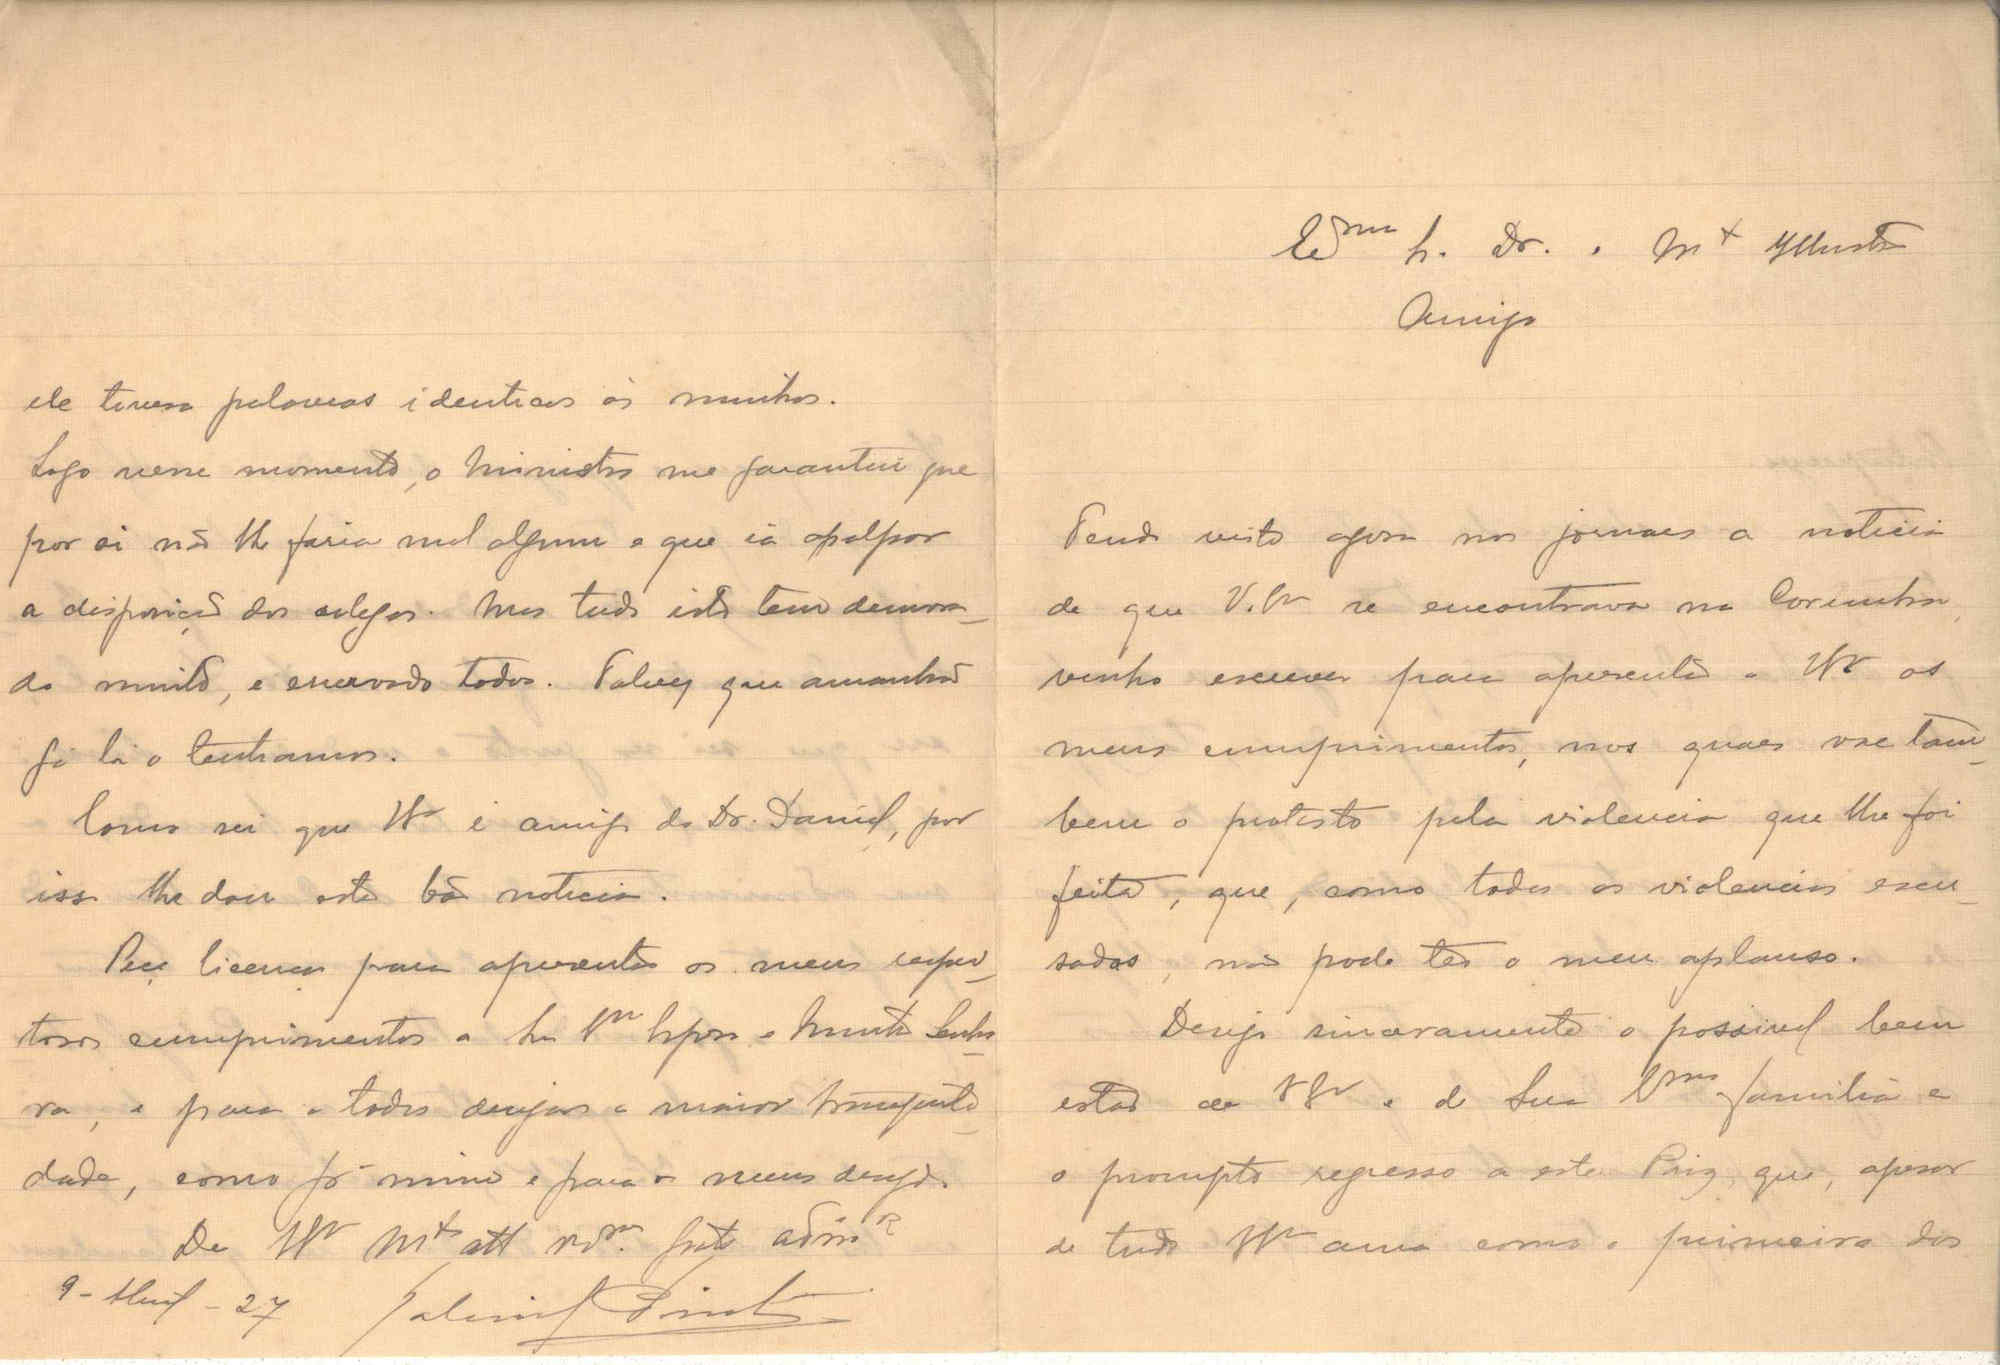 Exmo Sr. Dr. e Mto Illustre
Amigo
Tendo visto agora nos jornaes a noticia
de que V. Exa se encontrava na Corunha,
venho escrever para apresentar a V Exa os
meus cumprimentos, nos quaes vae tam-
bem o protesto pela violencia que lhe foi
feita, que, como todas as violencias escu-
sadas, não pode ter o meu aplauso.
Desejo sinceramente o possivel bem
estar de V Exa e de Sua Exma familia e
o prompto regresso a este Paiz, que, apesar
de tudo V Exa ama como o primeiro dos
ele tivera palavras identicas ás minhas.
Logo nesse momento, o Ministro me garantiu que
por si não lhe faria mal algum e que ia apalpar
a disposição dos colegas. Mas tudo isto tem demora-
do muito, e enervado todos. Talvez que amanhã
já lá o tenhamos.
Como sei que V Exa é amigo do Dr. Daniel, por
isso lhe dou esta bôa noticia.
Peço licença para apresentar os meus respei-
tosos cumprimentos a Sua Exma Esposa e Minha Senho-
ra, e para todos desejar a maior tranquili-
dade, como pª mim e para os meus desejo.
De V Exa Mto att vdor. grato admor
9 - Abril - 27